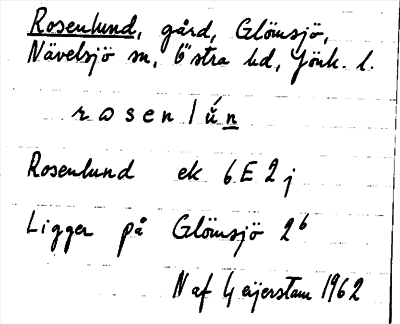 Rosenlund, gård, Glömsjö,
Nävelsjö sn, Östra hd, Jönk. l.
rosenlún
Rosenlund ek 6E2j
Ligger på Glömsjö 2⁶
N af Geijerstam 1962